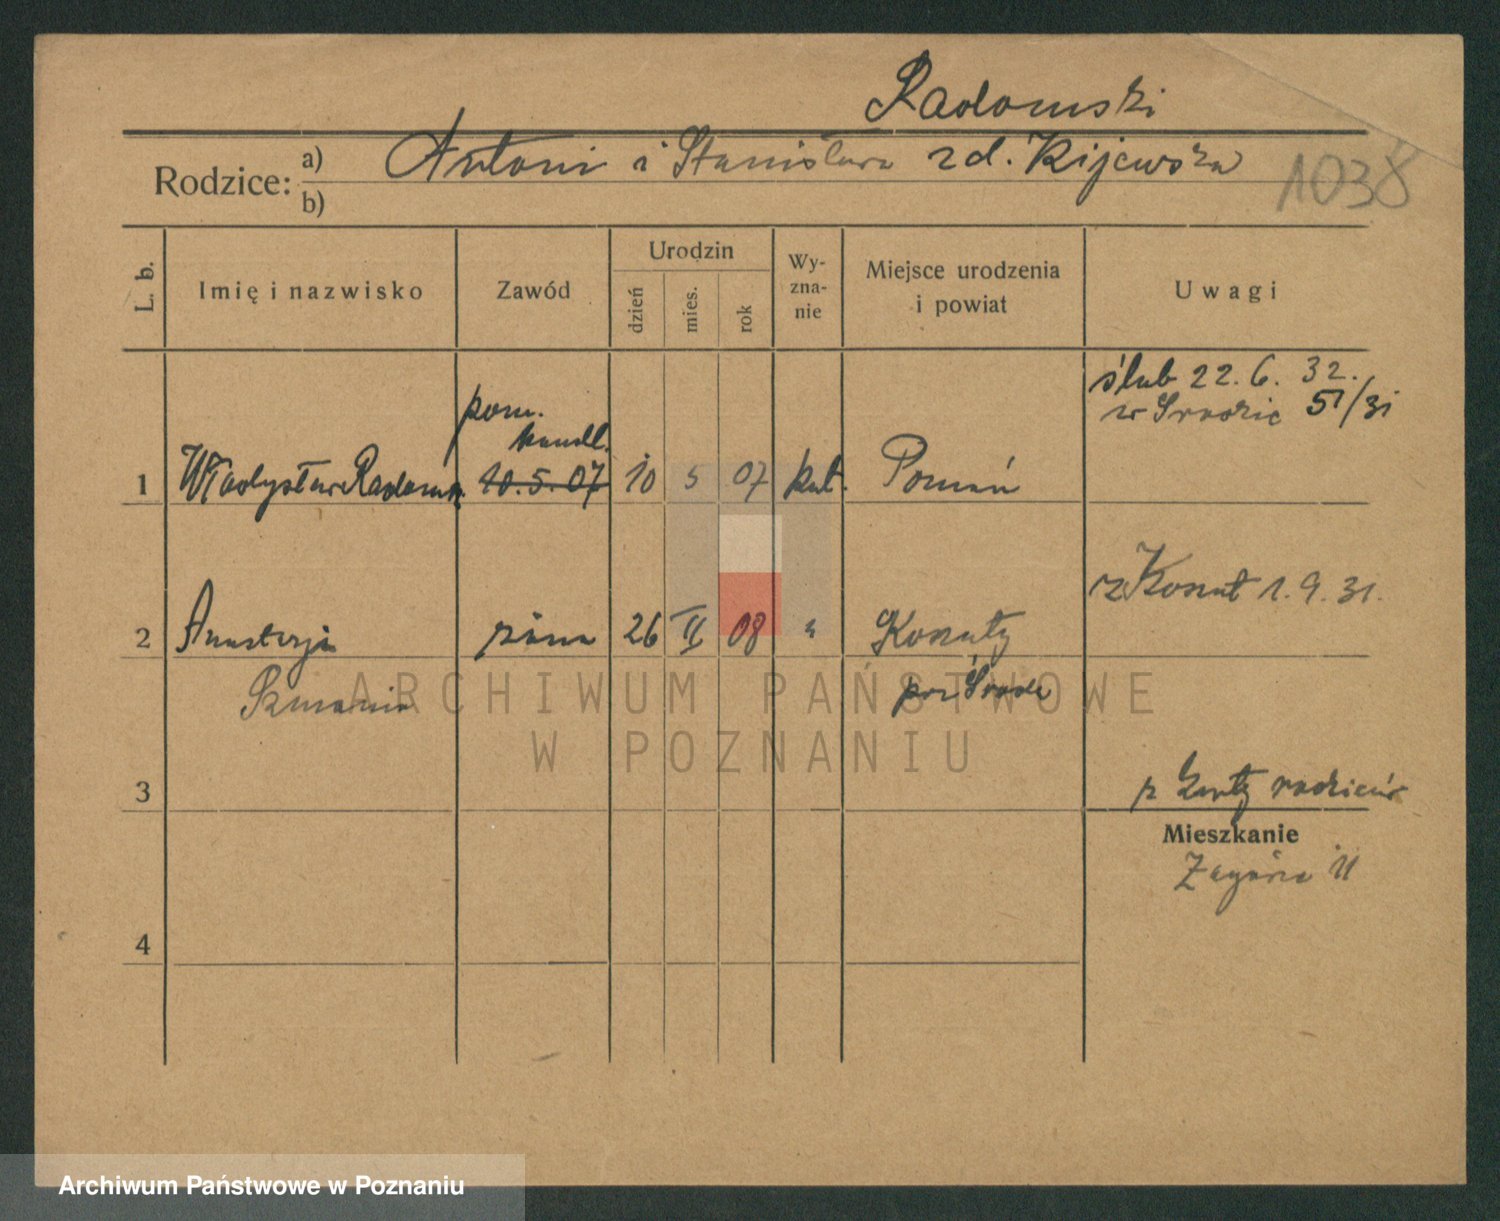 Radomski
Rodzice: a) Antoni i Stanisława zd. Kijewska
b)
1038
L. b.
Imię i nazwisko
Zawód
Urodzin
dzień
mies.
rok
Wy-
zna-
nie
Miejsce urodzenia
i powiat
Uwagi
ślub 22. 6. 32.
w Środzie 51/31
pom.
handl.
1 Władysław Radomsk. 10. 5. 07 10 5 07 kat. Poznań
z Koszut 1. 9. 31.
2 Anastazja żona 26 II 08 " Koszuty
pow Środa
3
z karty rodziców
Mieszkanie
Zagórze 11
4
ARCHIWUM PAŃSTWOWE
W POZNANIU
Archiwum Państwowe w Poznaniu